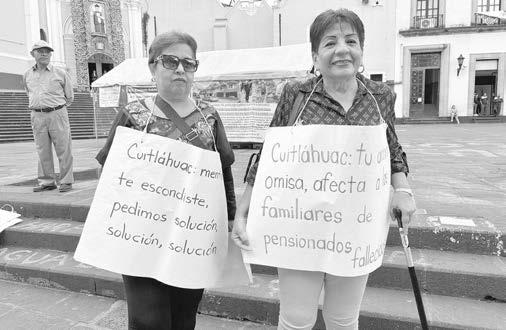 Cuitláhuac:
te escondiste,
pedimos solución,
solución, solución
Cuitláhuac: tu
omisa, afecta a
familiares de
pensionados